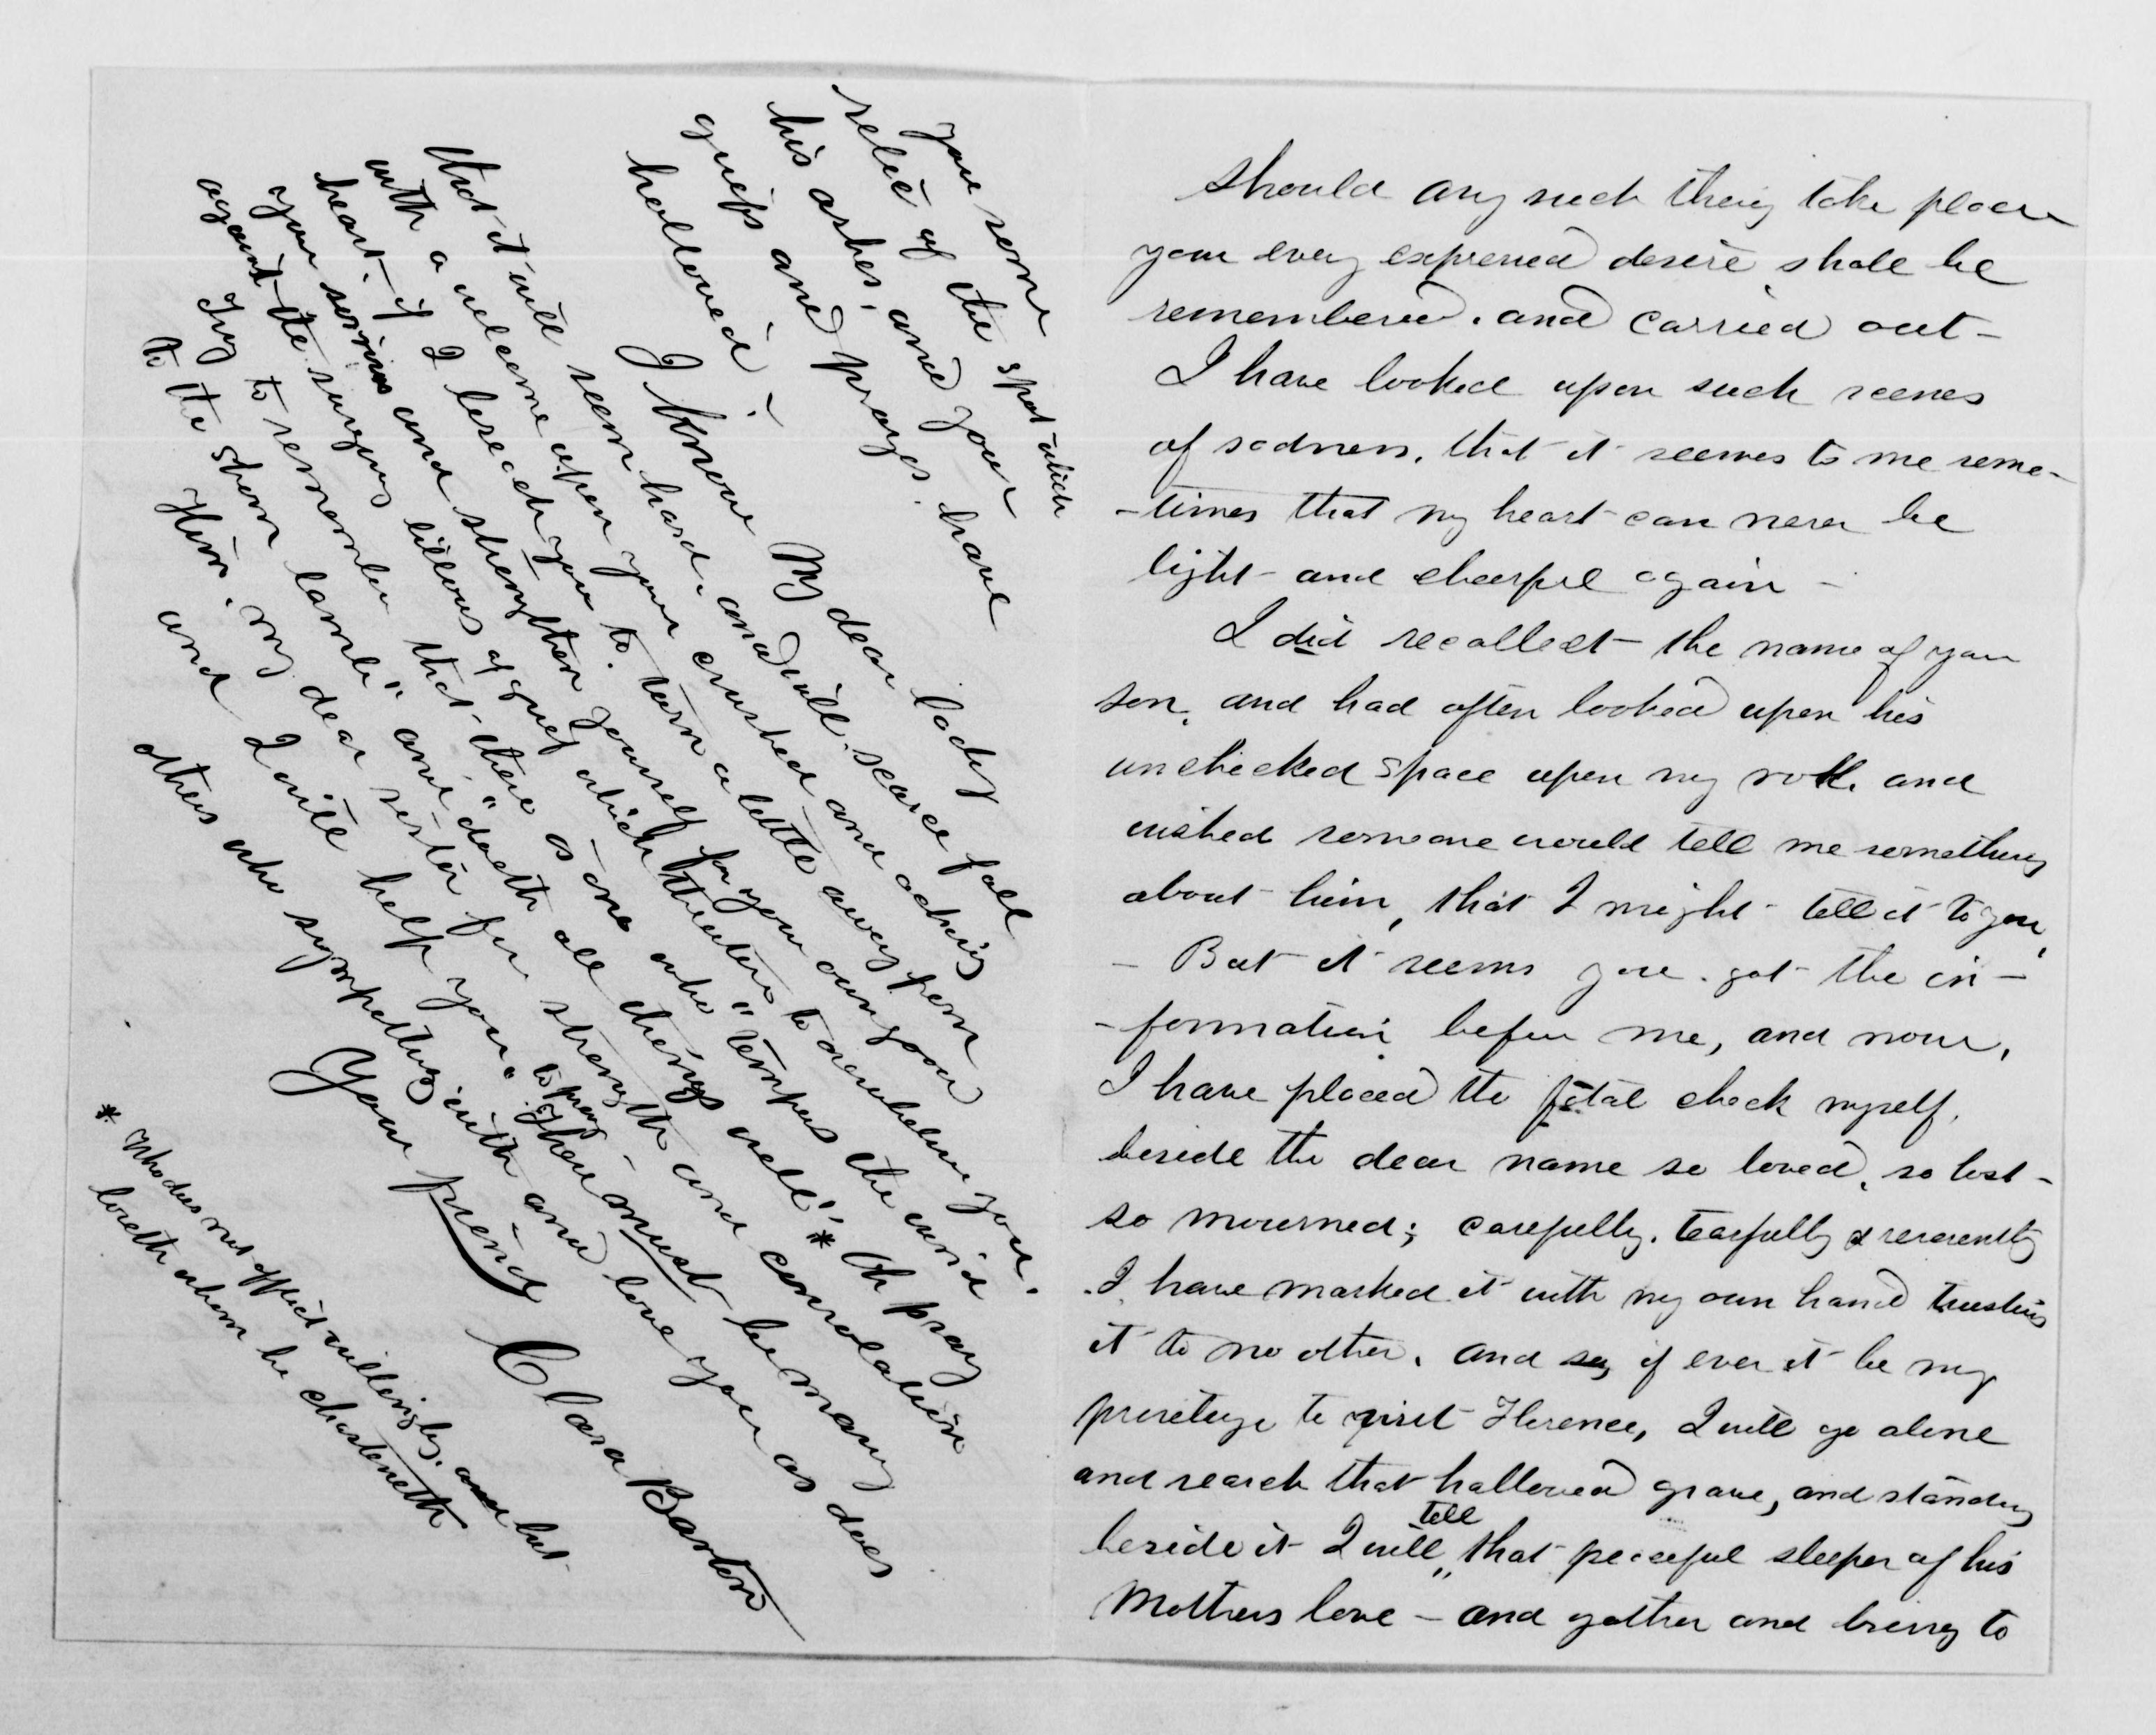 should any such thing take place
your every expressed desire shall be
remembered. and carried out -
I have looked upon such scenes
of sadness, that it seems to me some-
-times that my heart can never be
light and cheerful again -
I did recollect the name of your
son, and had often looked upon his
unchecked space upon my roll. and
wished someone would tell me something
about him, that I might tell it to you,
- But it seems you. got the in-
-formation before me, and now,
I have placed the fatal check myself,
beside the dear name so loved, so lost -
so mourned; carefully. tearfully & reverently
I have marked it with my own hand trusting
it to no other. and so, if ever it be my
privilege to visit Florence, I will go alone
and search that hallowed grave, and standing
beside it I will tell that peaceful sleeper of his
Mothers love - and gather and bring to
you some
relic of the spot which
his ashes, and your
griefs and prayers. have
hallowed. -
I know My dear lady
that it will seem hard. and will scarce fall
with a welcome upon your crushed and aching
heart - if I beseech you to. turn a little away from
your sorrows and strengthen yourself for your own good
against the surging billows of grief which threaten to overwhelm you.
Try to remember that there is one who "tempers the wind
to the shorn lamb" and "doeth all things well". * Oh pray
to Him. my dear sister for strength and consolation
and I will help you to pray. There must be many
others who sympathize with and love you as does
Your friend
Clara Barton
* Who does not afflict willingly, and but
loveth whom he chasteneth